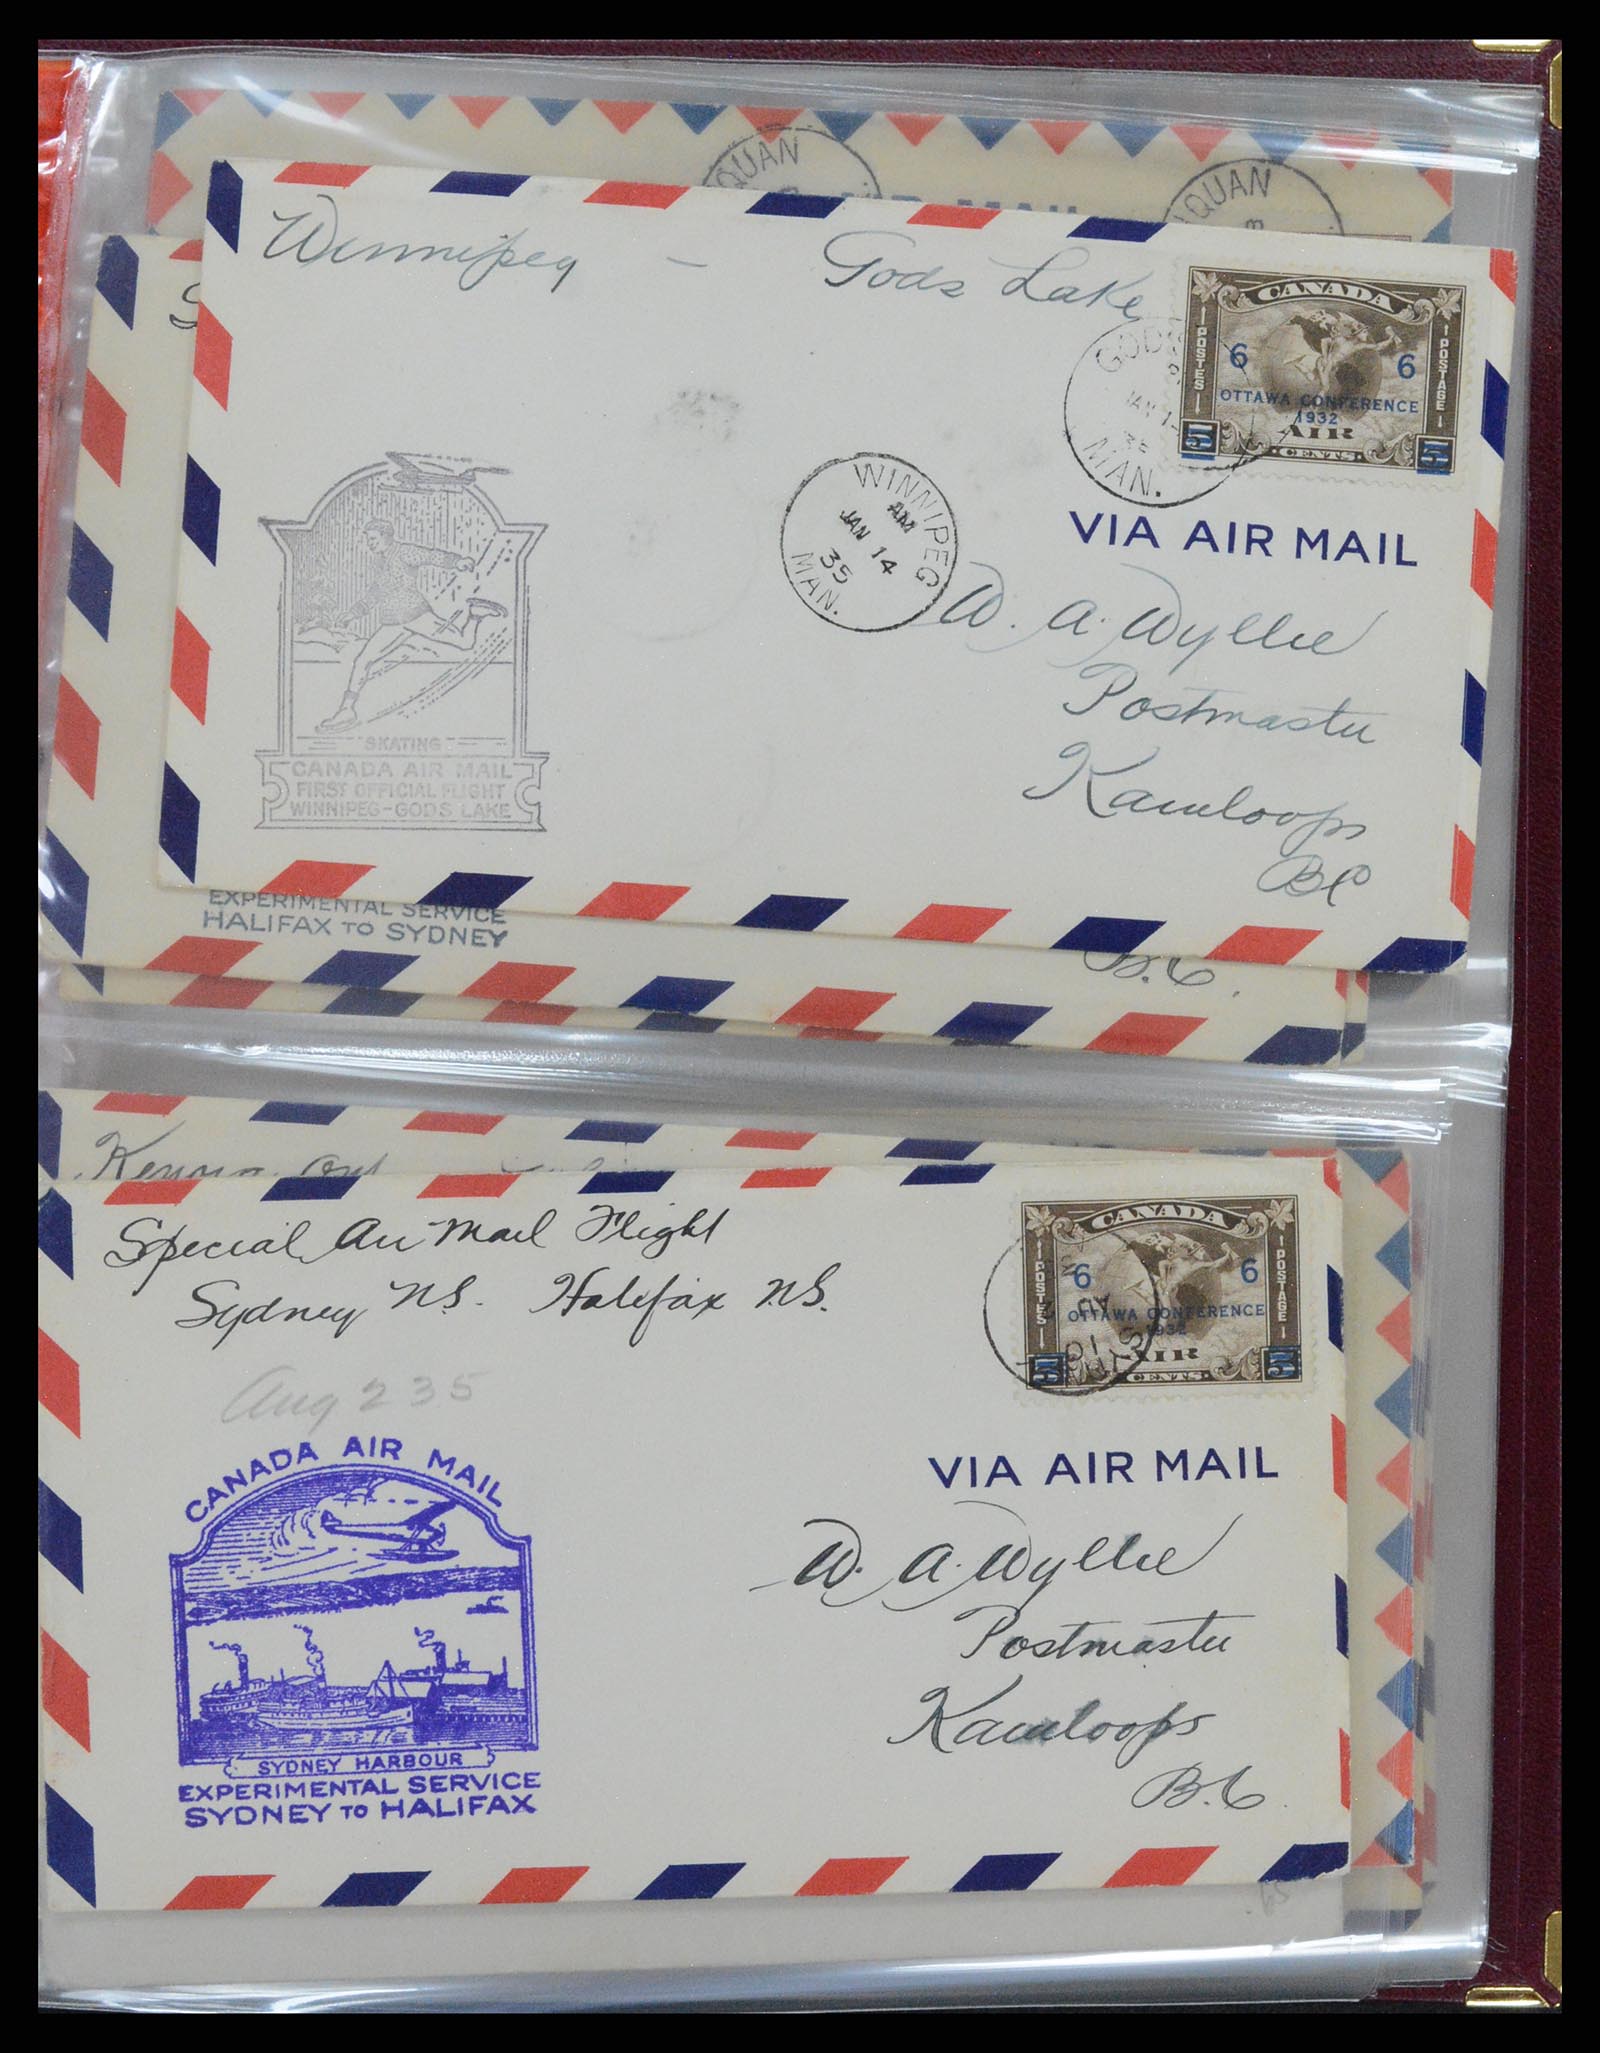 QUAN
QUAN
AIR MAIL
Winnipeg - Gods Lake
CANADA
POSTES
POSTAGE
6 6
OTTAWA CONFERENCE
1932
AIR
5 5
CENTS
GODS
JAN 1
35
MAN.
WINNIPEG
AM
JAN 14
35
MAN.
VIA AIR MAIL
W. A. Wyllie
Postmaster
Kamloops
BC
SKATING
CANADA AIR MAIL
FIRST OFFICIAL FLIGHT
WINNIPEG-GODS LAKE
S
EXPERIMENTAL SERVICE
HALIFAX TO SYDNEY
B.C.
Kenora Ont
Special Air Mail Flight
Sydney N.S. Halifax N.S.
Aug 2 35
CANADA
POSTES
POSTAGE
6 6
OTTAWA CONFERENCE
1932
AIR
5 5
CENTS
VIA AIR MAIL
W. A. Wyllie
Postmaster
Kamloops
B.C.
CANADA AIR MAIL
SYDNEY HARBOUR
EXPERIMENTAL SERVICE
SYDNEY TO HALIFAX